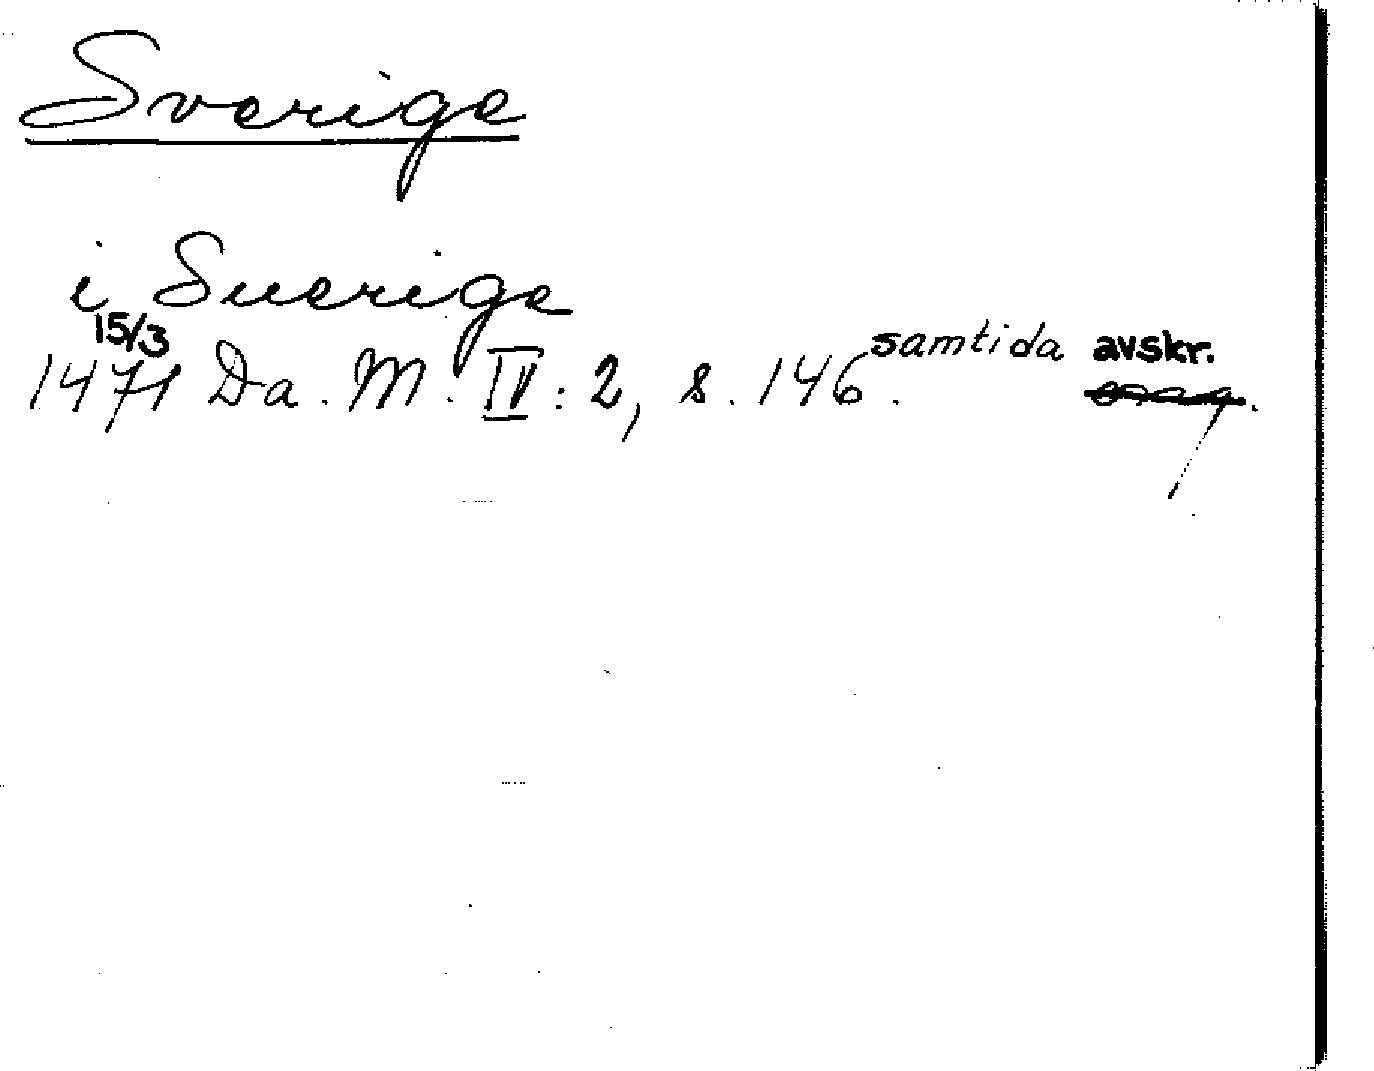 Sverige
i Suerige
15/3 samtida avskr.
1471 Da. M. IV: 2, s. 146.